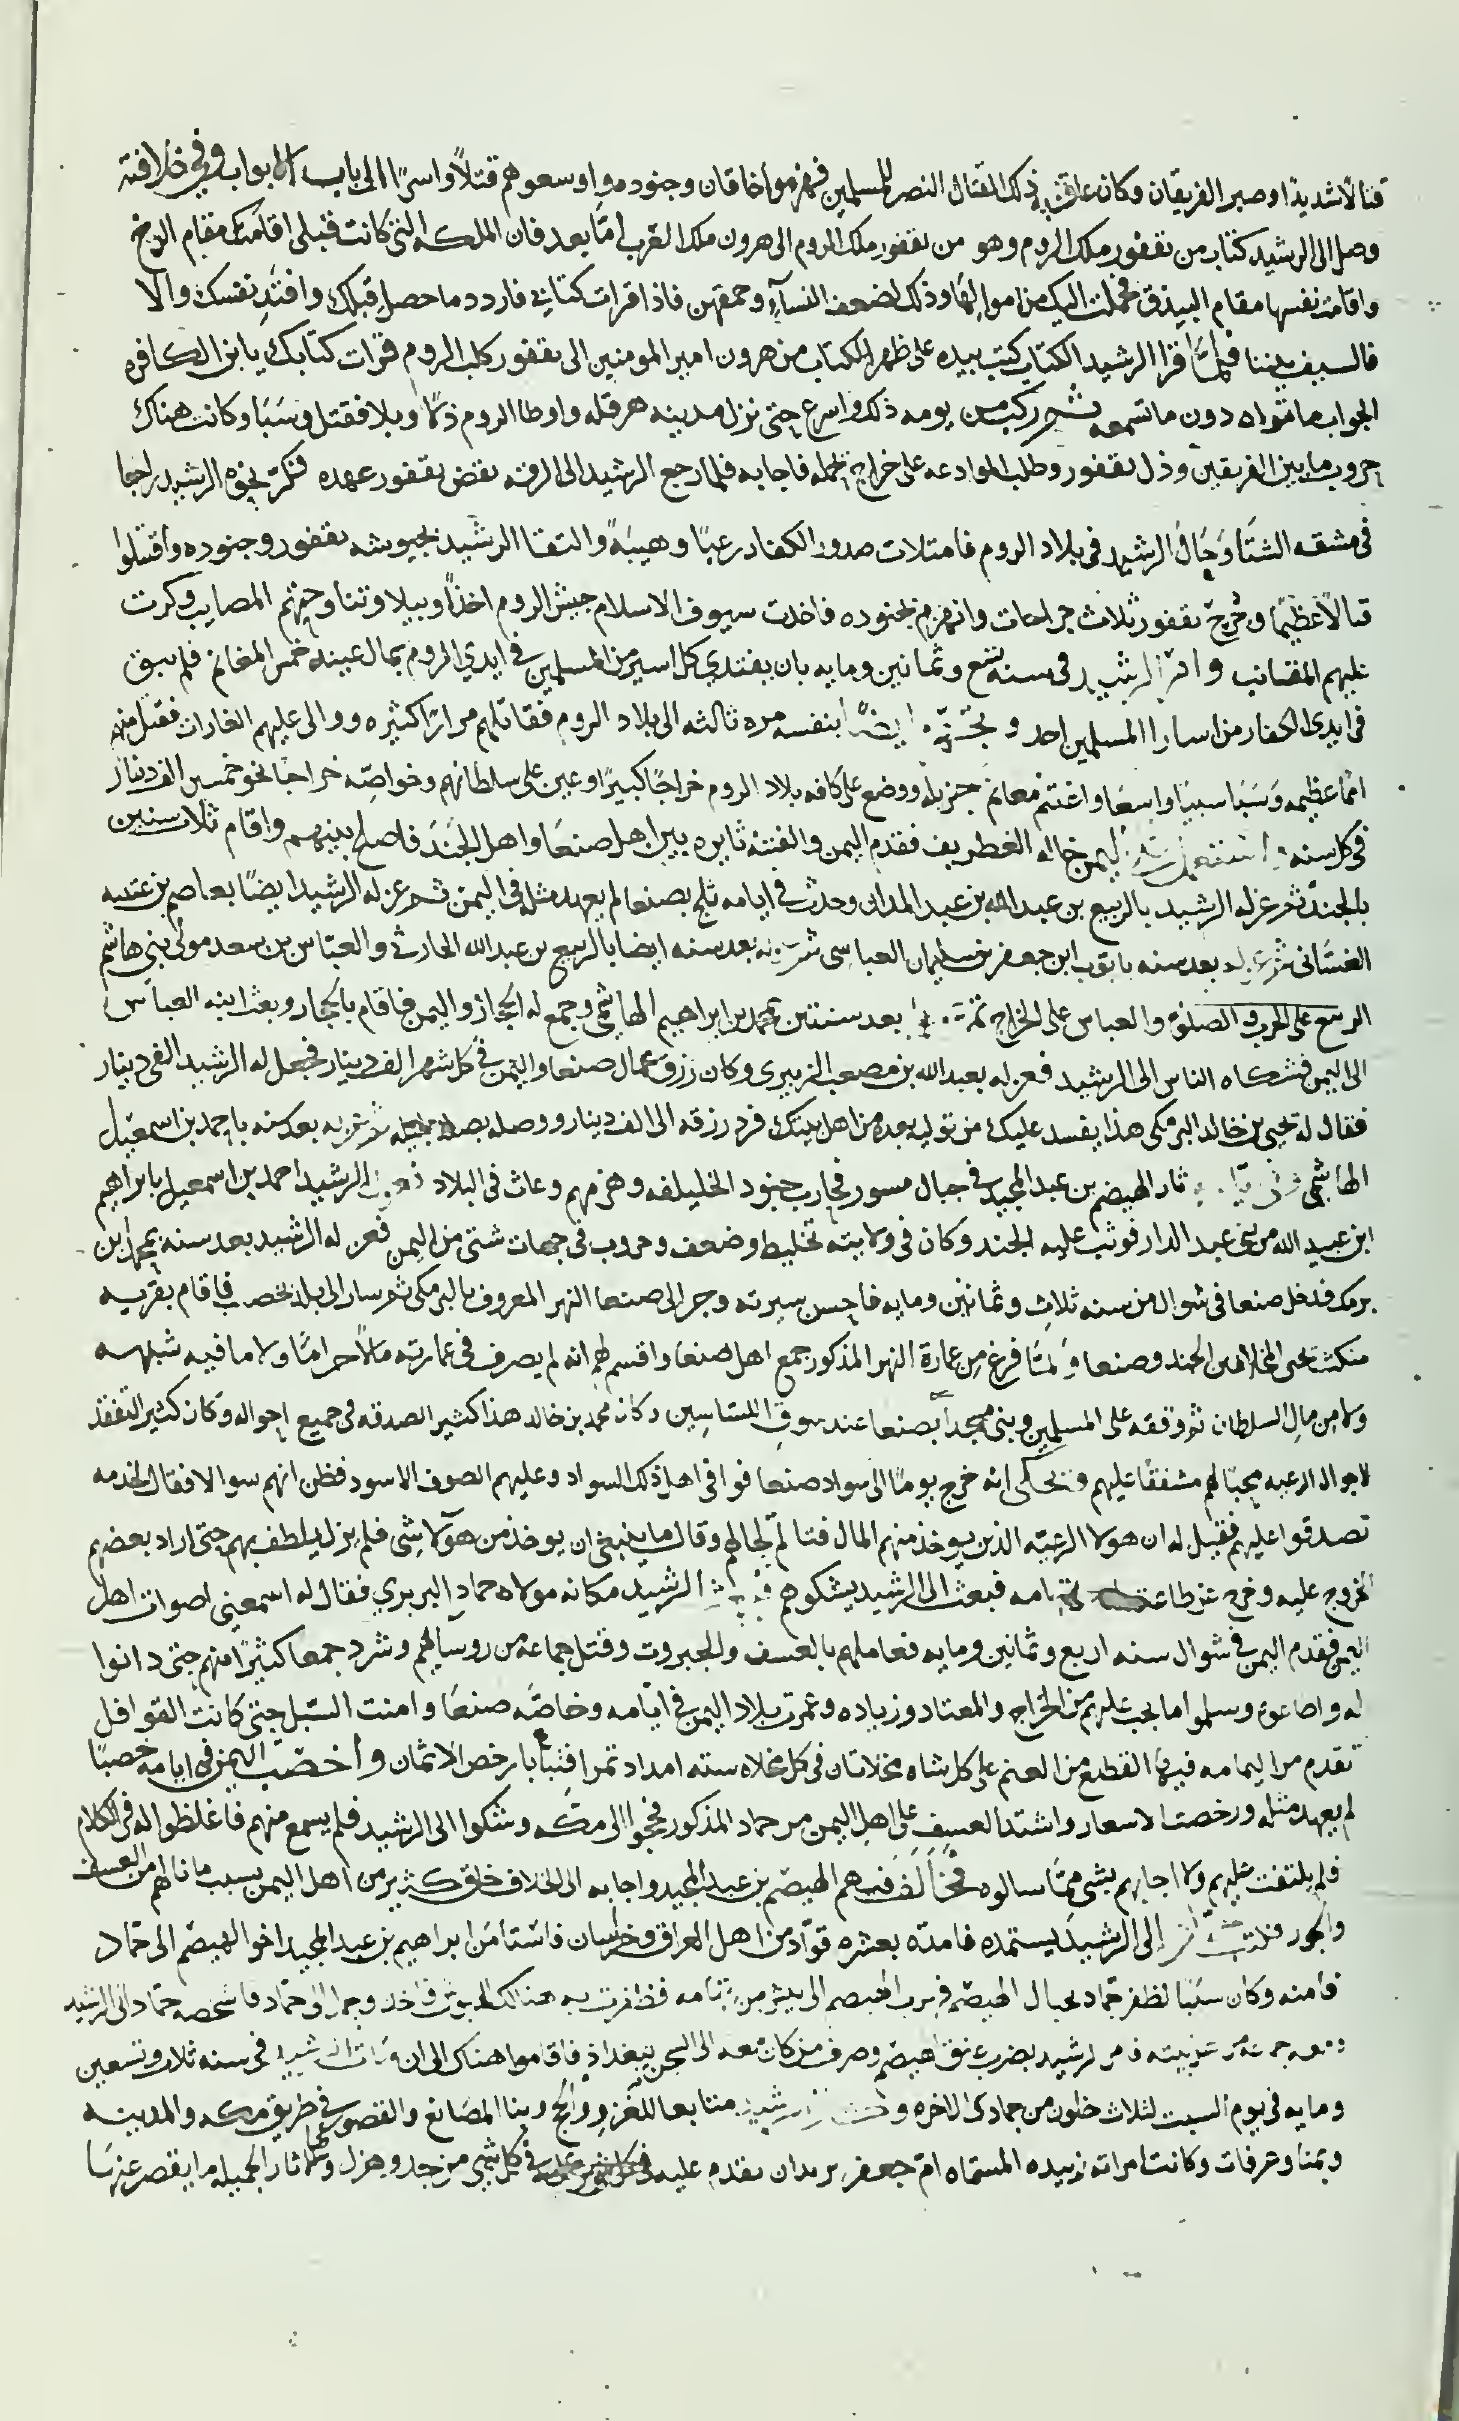 قتالا شديدا وصبر الفريقان وكان عاقبة ذلك القتال النصر للمسلمين فهزموا خاقان وجنوده واوسعوهم قتلاً واسرًا الى باب الابواب وفي خلافته
وصل الى الرشيد كتاب من نقفور ملك الروم وهو من نقفور ملك الروم الى هرون ملك العرب امّا بعد فان الملكه التي كانت قبلي اقامتك مقام الرخ
واقامت نفسها مقام البيذق فحملت اليك من اموالها وذلك لضعف النسآء وحمقهن فاذا قرات كتابي فاردد ما حصل قبلك وافتد نفسك والا
فالسيف بيننا فلمّا قرا الرشيد الكتاب كتب بيده على ظهر الكتاب من هرون امير المومنين الى نقفور كلب الروم قرات كتابك يا بن الكافره
الجواب ما تراه دون ما تسمعه ثم ركب من يومه ذلك واسرع حتى نزل مدينه هرقله واوطا الروم ذلًا وبلا فقتل وسَبَا وكانت هناك
حروب ما بين الفريقين وذل نقفور وطلب الموادعه على خراج يحمله فاجابه فلما رجع الرشيد الى الرقه نقض نقفور عهده فكرّ نحوه الرشيد راجعا
في مشقه الشتَا وَجَال الرشيد في بلاد الروم فامتلات صدور الكفار رعبًا وهيبةً والتقا الرشيد بجيوشه نقفور وجنوده واقتتلوا
قتالاً عظيمًا وجُرح نقفور ثلاث جراحات وانهزم بجنوده فاخذت سيوف الاسلام جيش الروم اخذًا وبيلا وتناوحتهم المصايب وكرت
عليهم المقانب وامر الرشيد في سنه تسع وثمانين ومايه بان يفتدي كل اسير من المسلمين في ايدي الروم بمال عينه خمس المغانم فلم يبق
في ايدي الكفار من اسارا المسلمين احد و ايضًا بنفسه مره ثالثه الى بلاد الروم فقاتلهم مرارًا كثيره ووالى عليهم الغارات فقتل منهم
امما عظيمه وَسَبَا سبيًا واسعًا واغتنم مغانم جزيله ووضع على كافه بلاد الروم خراجًا كبيرًا وعين على سلطانهم وخواصّه خراجًا نحو خمسين الف دينار
في كل سنه واستعمل اليمن خاله الغطريف فقدم اليمن والفتنة ثايره بين اهل صنعا واهل الجَنَد فاصلح بينهم واقام ثلاث سنين
بالجند ثم عزله الرشيد بالربيع بن عبد الله بن عبد المدان وحدث في ايامه ثلج بصنعا لم يعهد مثله في اليمن ثم عزله الرشيد ايضًا بعاصم بن عتبه
الغسّاني ثم عزله بعد سنه بايوب ابن جعفر بن سليمان العباسي ثم بعد سنه ايضا بالربيع بن عبد الله الحارثي والعبّاس بن سعد مولى بني هاشم
الربيع على الحرب والصلوة والعباس على الخراج بعد سنتين بمحمد بن ابراهيم الهاشمي وجمع له الحجاز واليمن فاقام بالحجاز وبعث ابنه العباس
الى اليمن فشكاه الناس الى الرشيد فعزله بعبد الله بن مصعب الزبيري وكان رزق عمال صنعا واليمن في كل شهر الف دينار فجعل له الرشيد الفي دينار
فقال له يحيى بن خالد البرمكي هذا يفسد عليك من توليه بعده من اهل بيتك فرد رزقه الى الف دينار ووصله بصله جزيله ثم عزله بعد سنه باحمد بن اسمعيل
الهاشمي ثار الهيصم بن عبد المجيد في جبال مسور فحارب جنود الخليفه وهزمهم وعاث في البلاد فعزل الرشيد احمد بن اسمعيل بابراهيم
ابن عبيد الله من بني عبد الدار فوثب عليه الجند وكان في ولايته تخليط وضعف وحروب في جهات شتى من اليمن فعزله الرشيد بعد سنه بمحمد ابن
برمك فدخل صنعا في شوال من سنه ثلاث وثمانين ومايه فاحسن سيرته وجر الى صنعا النهر المعروف بالبرمكي ثم سار الى بلاد يحصب فاقام بقريه
منكث بين الجند وصنعا ولمّا فرغ من عمارة النهر المذكور جمع اهل صنعا واقسم لهم انه لم يصرف في عمارته مالاً حرامًا ولا ما فيه شبهه
ولا من مال السلطان ثم وقفه على المسلمين وبنى مسجداً بصنعا عند سوق اللساسين وكان محمد بن خالد هذا كثير الصدقه في جميع احواله وكان كثير التفقد
لاحوال الرعيه محبًا لهم مشفقًا عليهم ويحكى انه خرج يومًا الى سواد صنعا فوافى اهل ذلك السواد وعليهم الصوف الاسود فظن انهم سوالا فقال لخدمه
تصدقوا عليهم فقيل له ان هولا الرعيّه الذين يوخذ منهم المال فتالم لحالهم وقال ما ينبغي ان يوخذ من هولا شي فلم يزل يلطف بهم حتى اراد بعضهم
الخروج عليه وخرج عن طاعته تهامه فبعث الى الرشيد يشكوهم الرشيد مكانه مولاه حماد البربري فقال له اسمعني اصوات اهل
اليمن فقدم اليمن في شوال سنه اربع وثمانين ومايه فعاملهم بالعسف والجبروت وقتل جماعة من روسآيهم وشرد جمعا كثيرًا منهم حتى دانوا
له واطاعوه وسلموا ما يجب عليهم من الخراج والمعتاد وزياده وعمرت بلاد اليمن في ايّامه وخاصّه صنعا وامنت السّبل حتى كانت القوافل
تقدم من اليمامه فيها القطع من الغنم على كل شاه مخلاتان في كل مخلاه سته امداد تمرا فتباع بارخص الاثمان واخصبت اليمن في ايامه خصبًا
لم يعهد مثله ورخصت الاسعار واشتد العسف على اهل اليمن من حماد المذكور فحجوا الى مكّه وشكوا الى الرشيد فلم يسمع منهم فاغلظوا له في الكلام
فلم يلتفت عليهم ولا اجابهم بشي ممّا سالوه فخالف فيهم الهيصم بن عبد المجيد واجابه الى الخلاف خلق كثير من اهل اليمن بسبب ما نالهم من العسف
والجور فكتب الى الرشيد يستمده فامدّه بعشره قوّاد من اهل العراق وخراسان فاستامن ابراهيم بن عبد المجيد اخو الهيصم الى حمّاد
فامنه وكان سببا لظفر حماد بجبال الهيصم فهرب الهيصم الى بيش من تهامه فظفرت به هنالك الجيوش فاخذ وحمل الى حمّاد فاشخصه حمّاد الى الرشيد
ومعه جماعة من اهل بيته فامر الرشيد بضرب عنق الهيصم وصرف من كان معه الى السجن ببغداذ فاقاموا هناك الى ان مات الرشيد في سنه ثلاث وتسعين
ومايه في يوم السبت لثلاث خلون من جمادى الاخره و الرشيد متابعا للغزو والحج وبنا المصانع والقصور في طريق مكه والمدينه
وبمنا وعرفات وكانت امراته زبيده المسمّاه امّ جعفر تقدم عليه في كل شي من جد وهزل ولها الاثار الجميله ما يقصر عنها